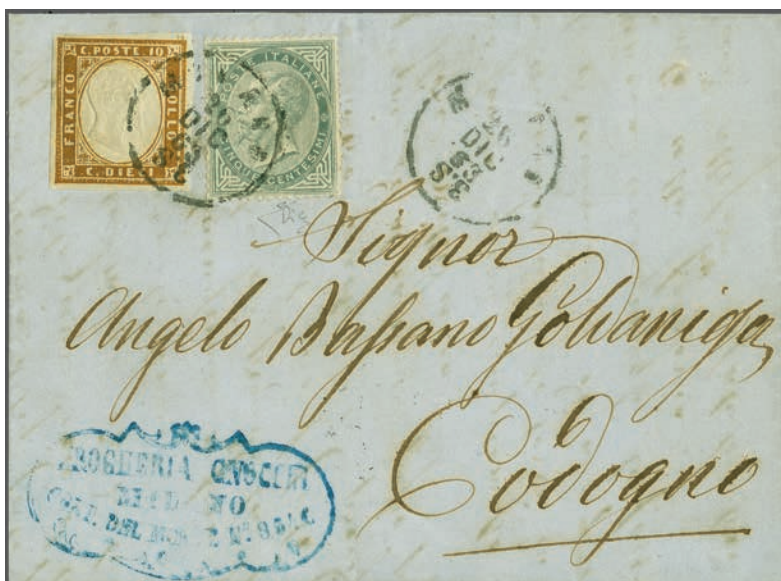 C. POSTE 10
FRANCO
BOLLO
C. DIECI
POSTE ITALIANE
CINQUE CENTESIMI
26
DIC
63
26
DIC
63
Signor
Angelo Baſsano Goldaniga
Codogno
DROGHERIA GNOCCHI
DEL N°